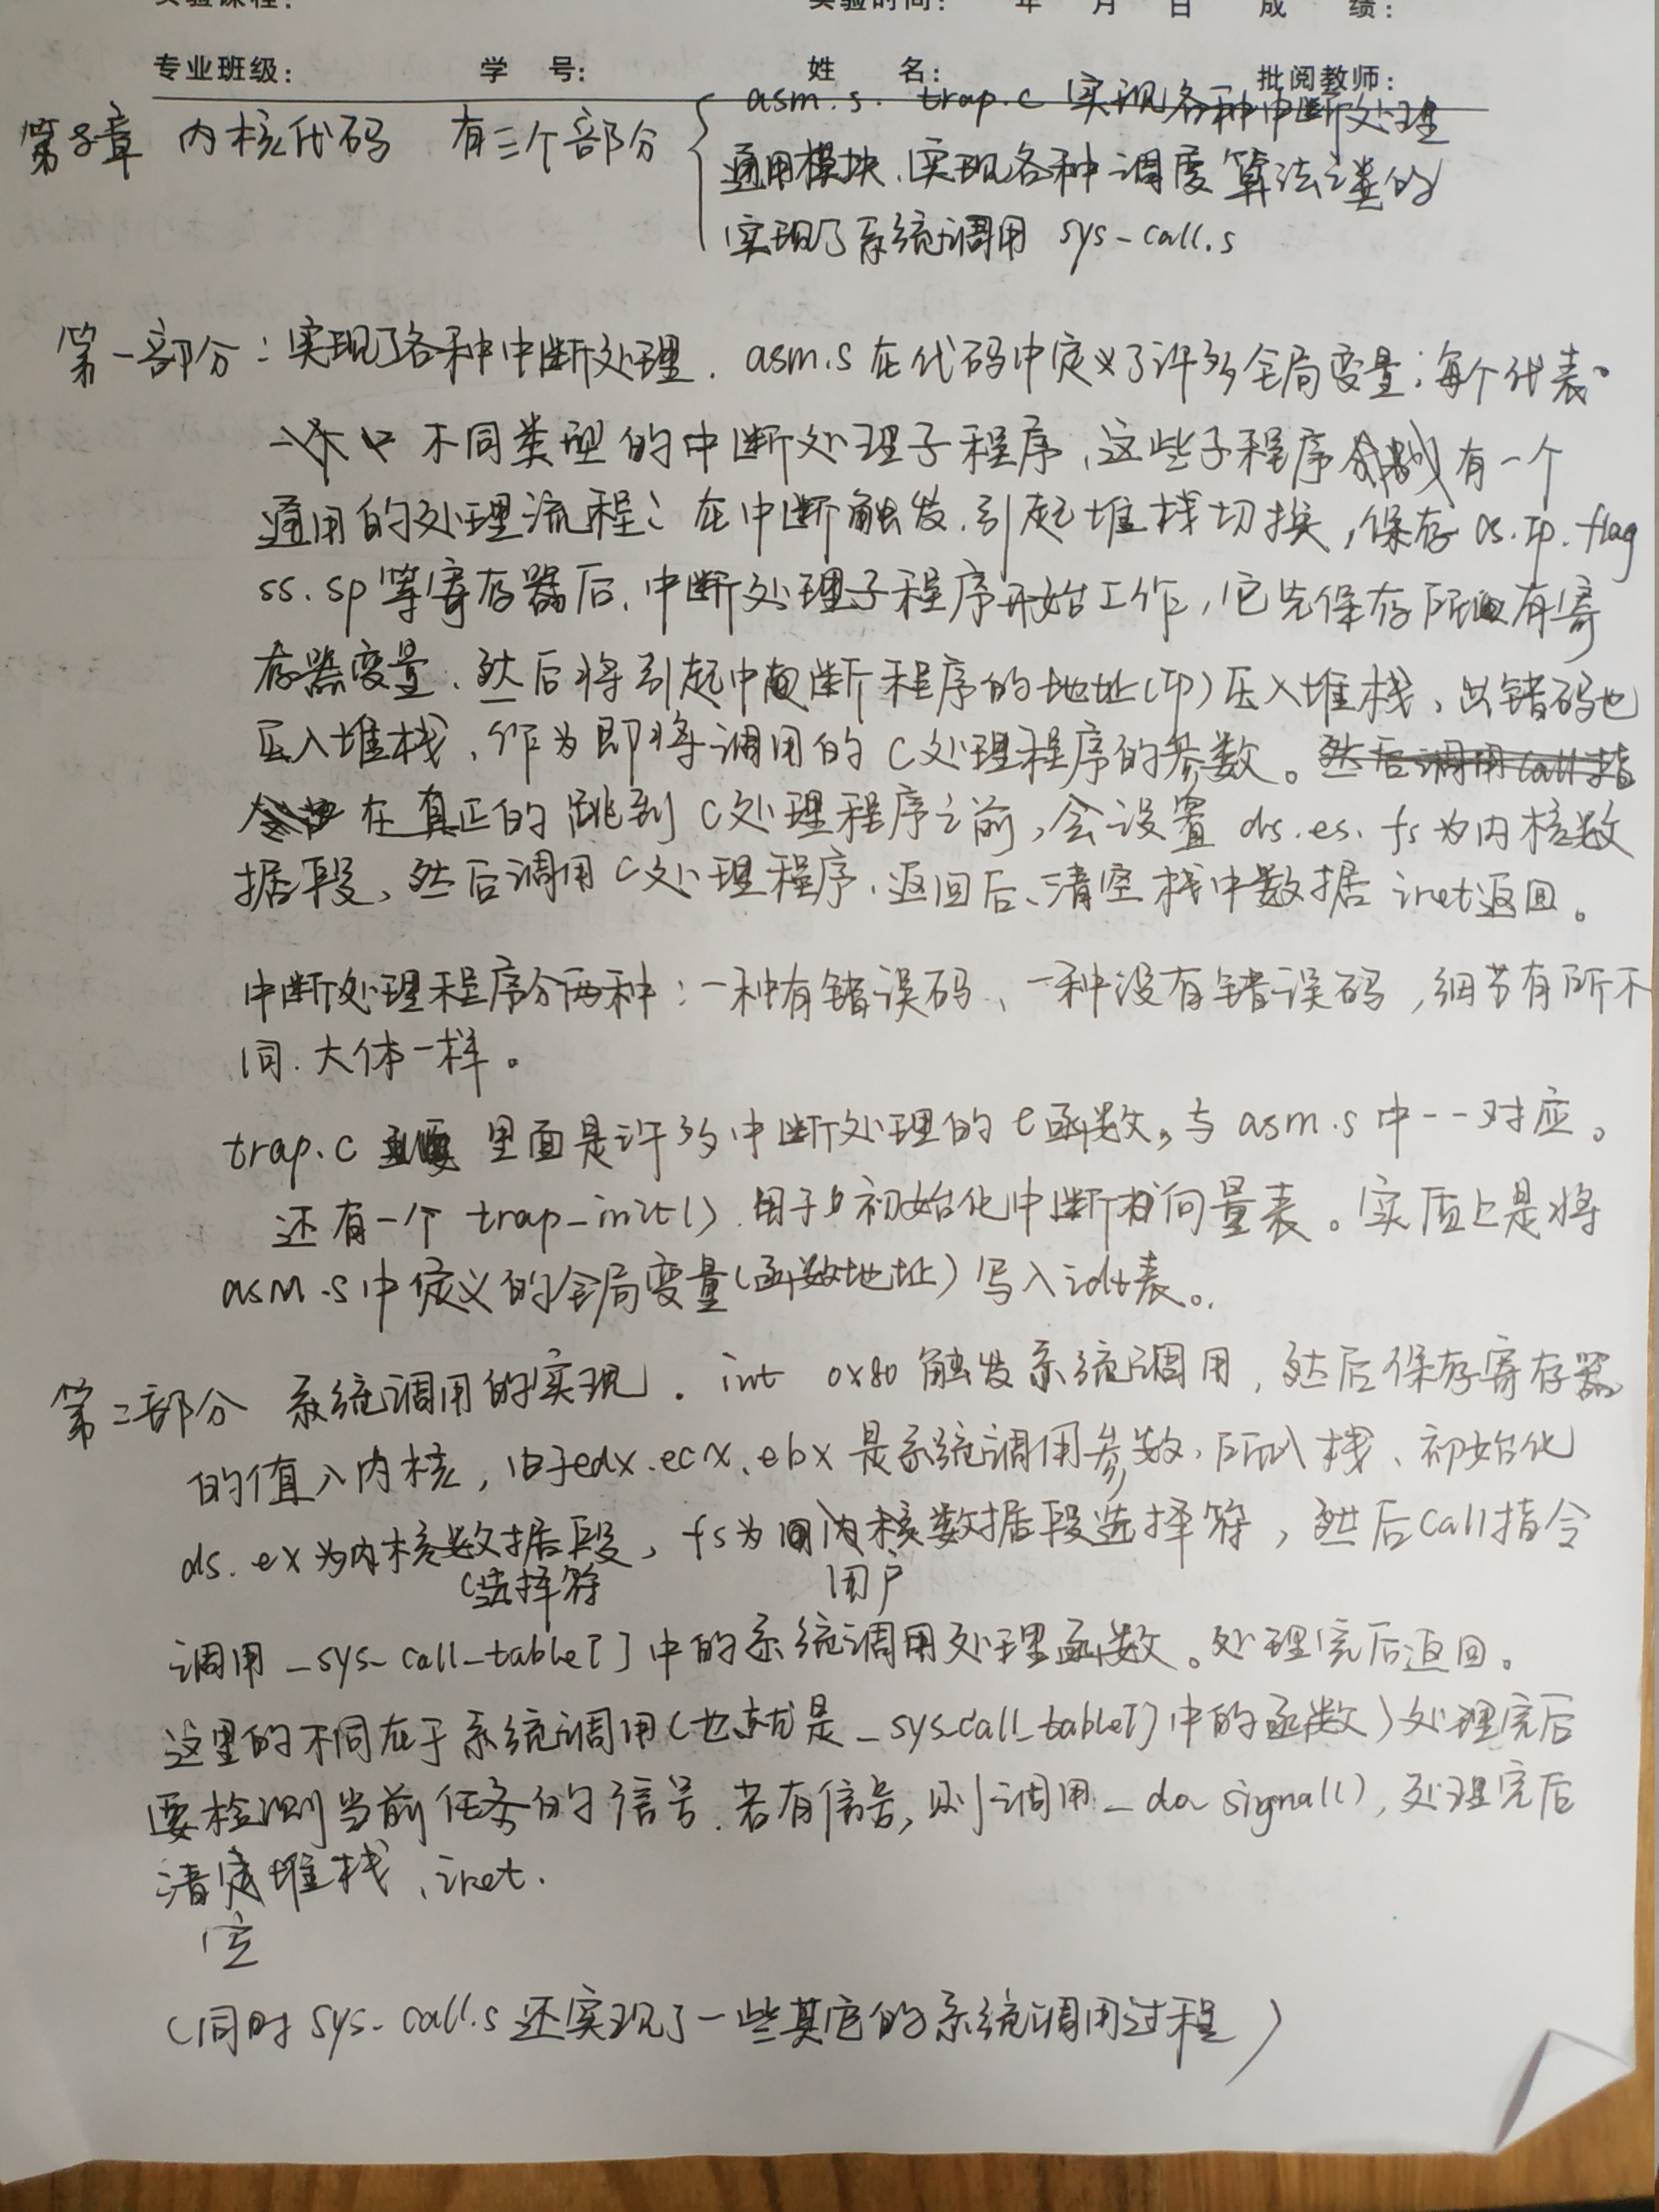 实验课程： 实验时间： 年 月 日 成 绩：
专业班级： 学 号： 姓 名： 批阅教师：
asm.s. trap.c 实现各种中断处理
第8章 内核代码 有三个部分 通用模块、实现各种调度算法之类的
实现了系统调用 sys-call.s
第一部分：实现了各种中断处理. asm.s 在代码中定义了许多全局变量；每个代表
不同类型的中断处理子程序、这些子程序 有一个
通用的处理流程：在中断触发.引起堆栈切换，保存 cs.ip.flag
ss.sp等寄存器后.中断处理子程序开始工作，它先保存所有寄
存器变量、然后将引起中断程序的地址(ip)压入堆栈、出错码也
压入堆栈、作为即将调用的 C处理程序的参数。然后调用call指
令 在真正的跳到 C处理程序之前，会设置 ds.es.fs为内核数
据段、然后调用C处理程序、返回后、清空栈中数据 iret返回。
中断处理程序分两种：一种有错误码、一种没有错误码，细节有所不
同.大体一样。
trap.c 里面是许多中断处理的C函数，与 asm.s 中一一对应。
还有一个 trap_init().用于初始化中断向量表。实质上是将
asm.s中定义的全局变量(函数地址)写入idt表。
第二部分 系统调用的实现. int 0x80 触发系统调用，然后保存寄存器
的值入内核，由于edx.ecx.ebx是系统调用参数.所以入栈、初始化
ds.ex为内核数据段，fs为内核数据段选择符，然后call指令
选择符 用户
调用 _sys_call_table[]中的系统调用处理函数。处理完后返回。
这里的不同在于系统调用(也就是_sys_call_table[]中的函数)处理完后
要检测当前任务的信号.若有信号，则调用_do_signal()，处理完后
清 堆栈、iret.
空
(同时sys-call.s还实现了一些其它的系统调用过程)